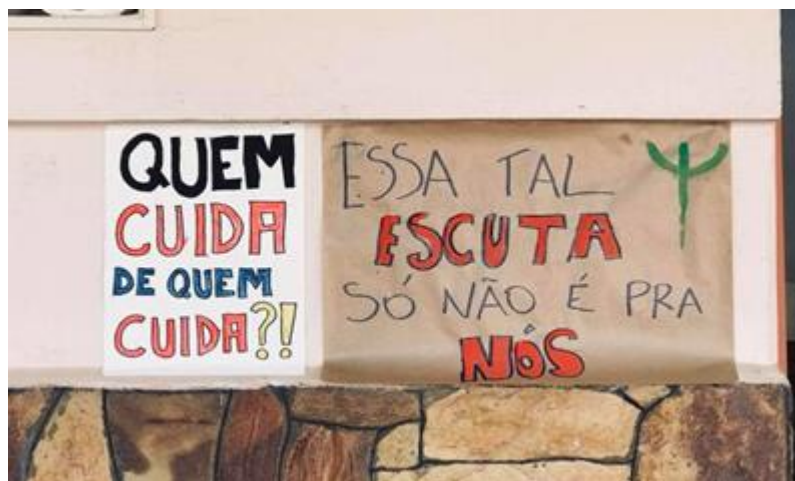 QUEM
CUIDA
DE QUEM
CUIDA?!
ESSA TAL
ESCUTA
SÓ NÃO É PRA
NÓS